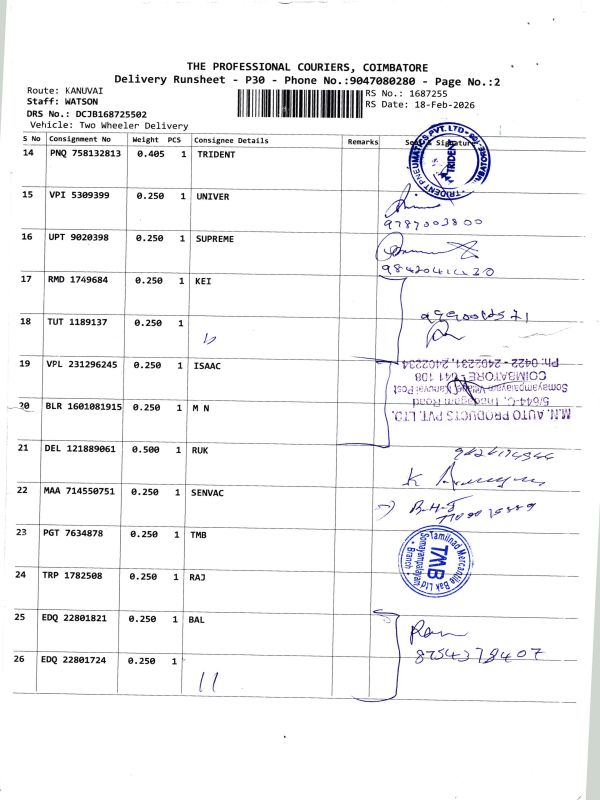 THE PROFESSIONAL COURIERS, COIMBATORE
Delivery Runsheet - P30 - Phone No.:9047080280 - Page No.:2
Route: KANUVAI
RS No.: 1687255
Staff: WATSON
RS Date: 18-Feb-2026
DRS No.: DCJB168725502
Vehicle: Two Wheeler Delivery
S No Consignment No Weight PCS Consignee Details Remarks Seal & Signature
14 PNQ 758132813 0.405 1 TRIDENT
TRIDENT PNEUMATICS PVT. LTD
TRIDENT
15 VPI 5309399 0.250 1 UNIVER
9787003800
16 UPT 9020398 0.250 1 SUPREME
17 RMD 1749684 0.250 1 KEI
18 TUT 1189137 0.250 1
19 VPL 231296245 0.250 1 ISAAC
20 BLR 1601081915 0.250 1 M N
M.N. AUTO PRODUCTS PVT. LTD.
5/644-C, Thadagam Road
Somayampalayam Village, Kanuvai Post
COIMBATORE - 641 108
Ph: 0422 - 2402231, 2402234
21 DEL 121889061 0.500 1 RUK
22 MAA 714550751 0.250 1 SENVAC
23 PGT 7634878 0.250 1 TMB
Tamilnad Mercantile Bak Ltd
TMB
Somayampalayam
Branch
24 TRP 1782508 0.250 1 RAJ
25 EDQ 22801821 0.250 1 BAL
Ram
8754378407
26 EDQ 22801724 0.250 1
11